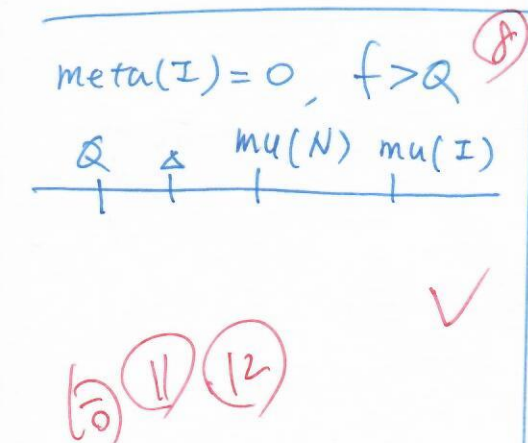 8
meta(I) = 0, f > Q
Q Δ mu(N) mu(I)
10 11 12